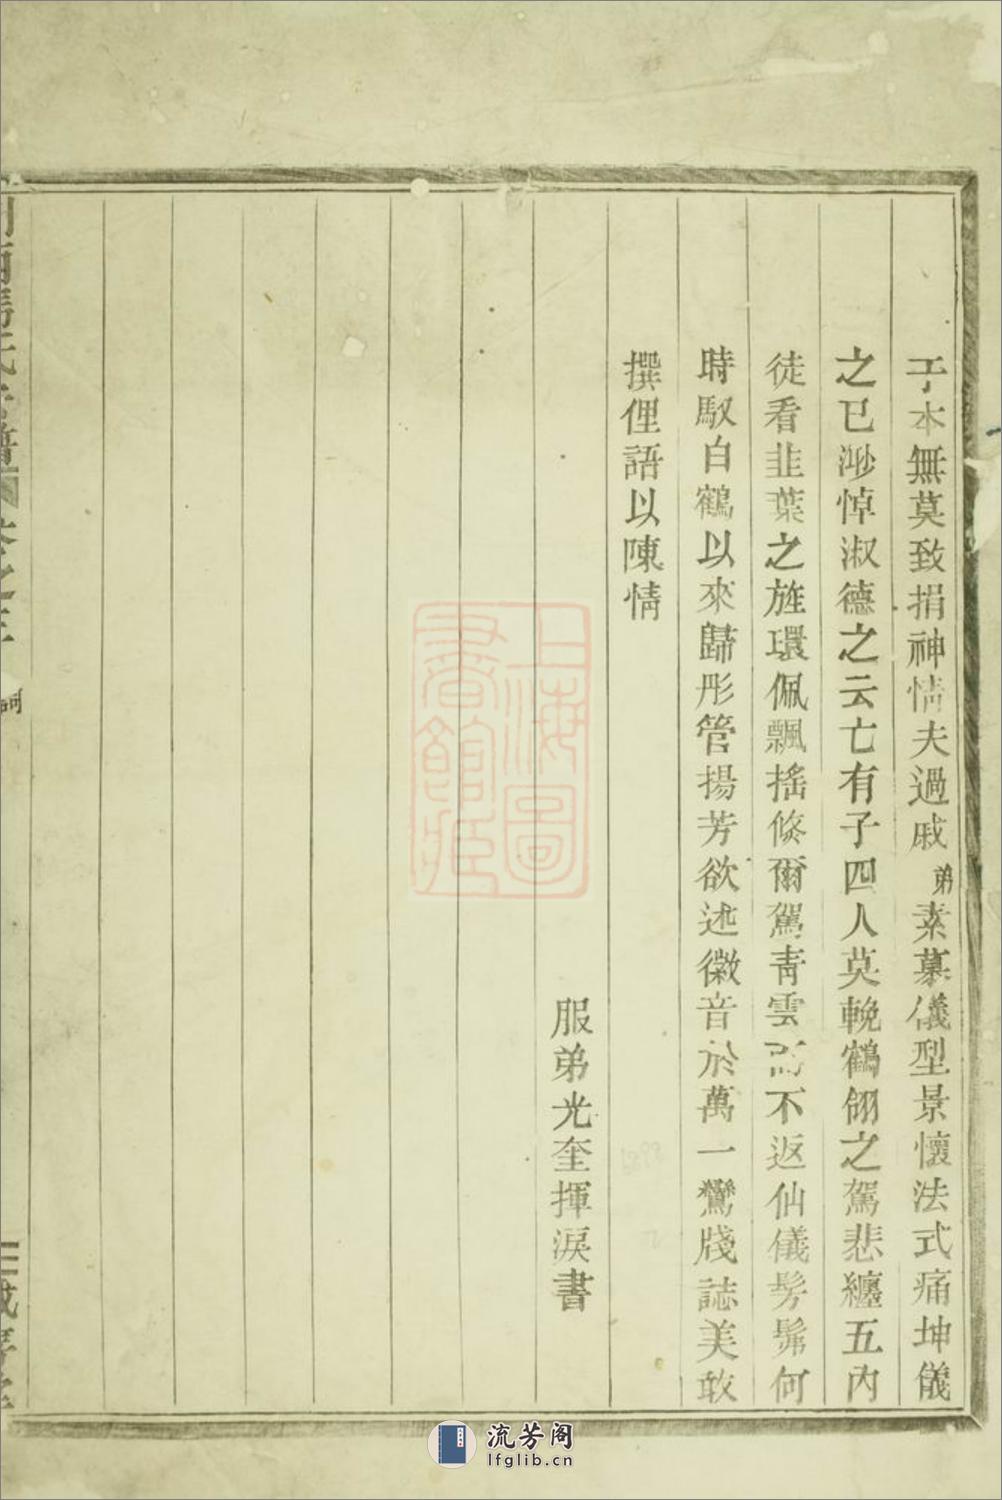 子本無莫致捐神情夫過戚弟素慕儀型景懷法式痛坤儀
之已渺悼淑德之云亡有子四人莫輓鶴翎之駕悲纏五內
徒看韭葉之旌環佩飄搖倏爾駕青雲而不返仙儀髣髴何
時馭白鶴以來歸彤管揚芳欲述徽音於萬一鸞牋誌美敢
撰俚語以陳情
服弟光奎揮淚書
上海圖
書館藏
流芳阁
lfglib.cn